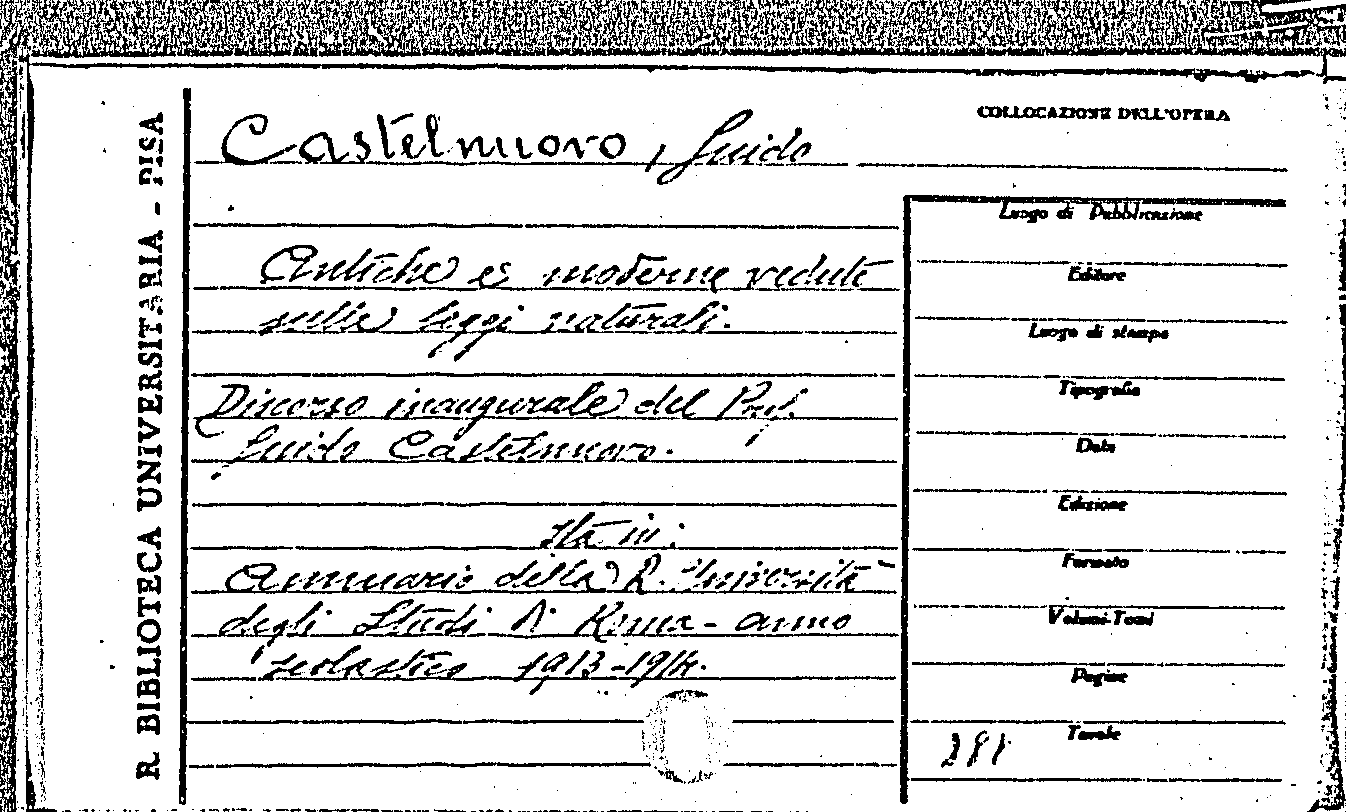 R. BIBLIOTECA UNIVERSITARIA - PISA
Castelnuovo, Guido
Antiche e moderne vedute
sulle leggi naturali.
Discorso inaugurale del Prof.
Guido Castelnuovo.
Sta in:
Annuario della R. Università
degli Studi di Roma - anno
scolastico 1913-1914.
COLLOCAZIONE DELL'OPERA
Luogo di Pubblicazione
Editore
Luogo di stampa
Tipografia
Data
Edizione
Formato
Volumi-Tomi
Pagine
Tavole